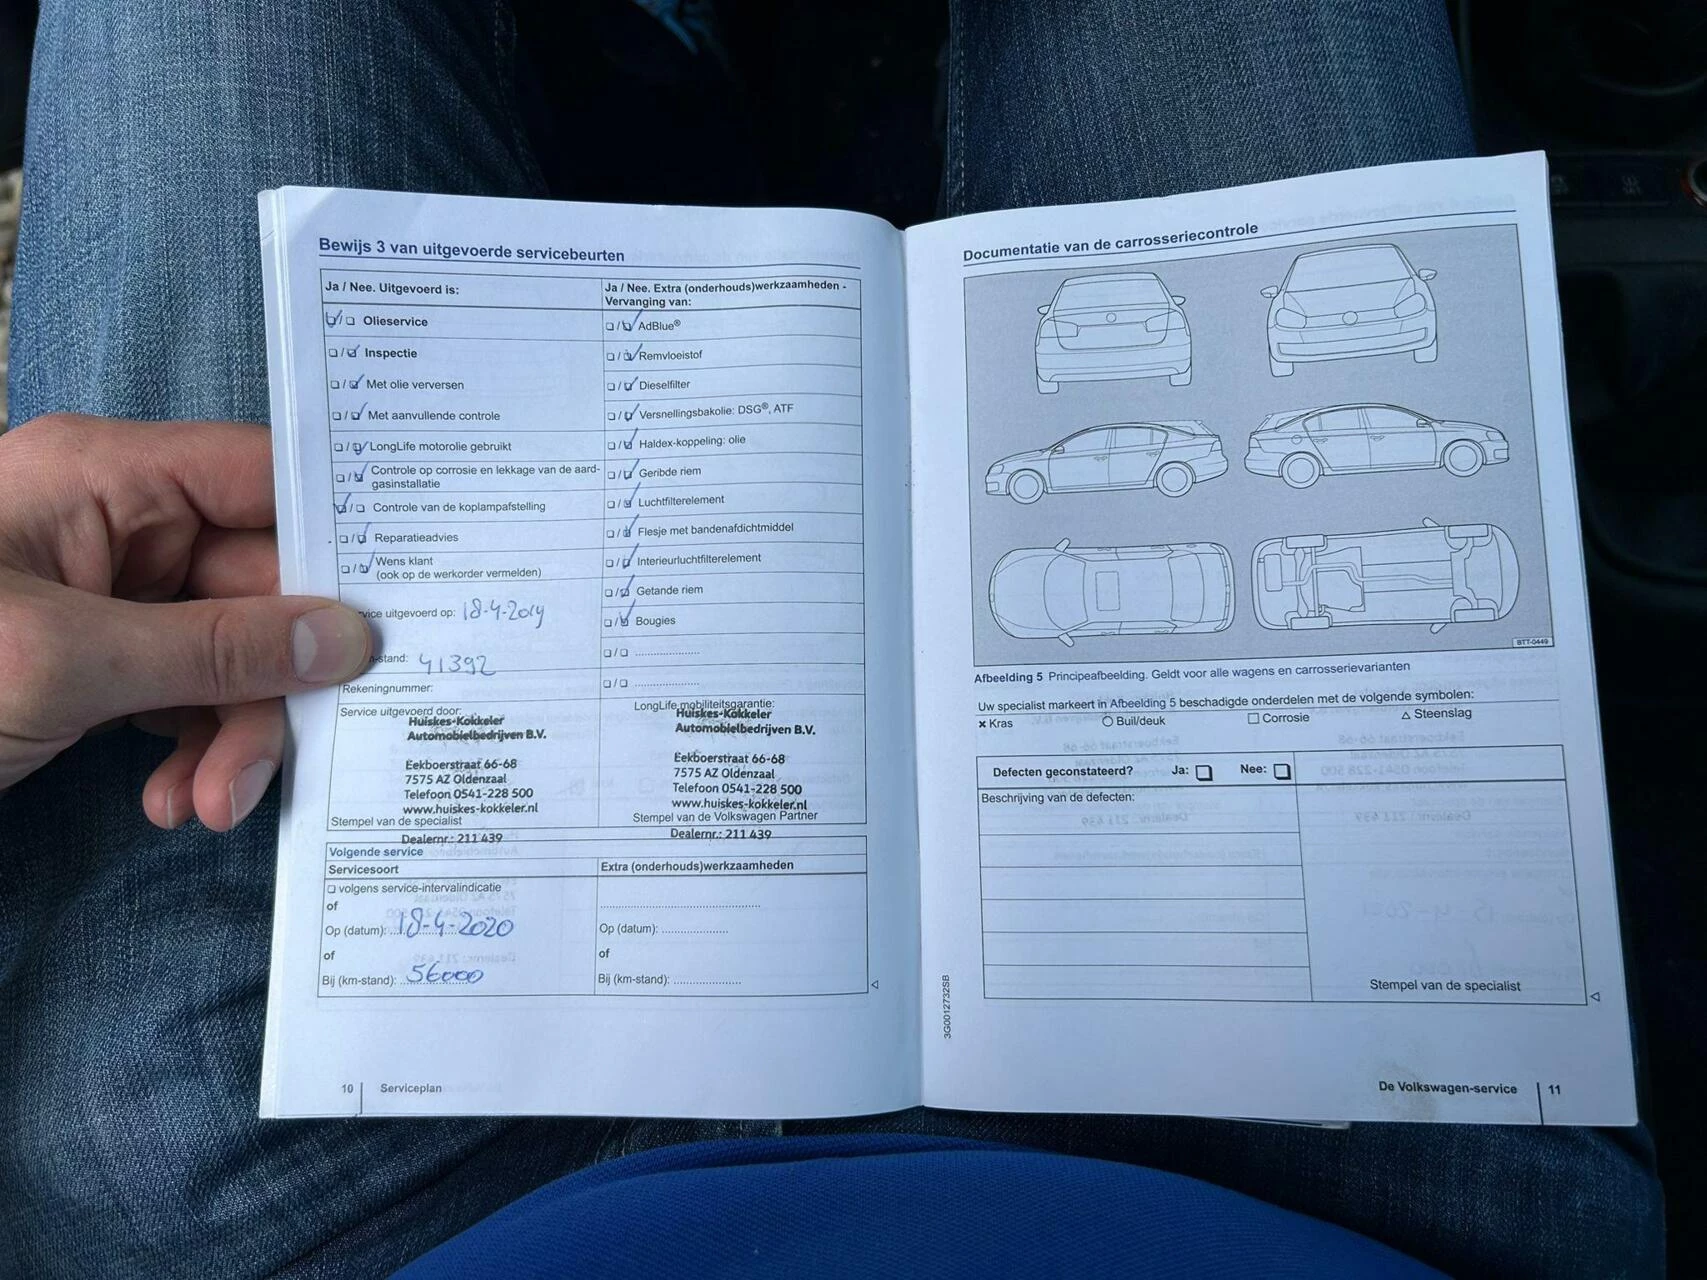 Bewijs 3 van uitgevoerde servicebeurten
Ja / Nee. Uitgevoerd is:
Olieservice
Inspectie
Met olie verversen
Met aanvullende controle
LongLife motorolie gebruikt
Controle op corrosie en lekkage van de aard-
gasinstallatie
Controle van de koplampafstelling
Reparatieadvies
Wens klant
(ook op de werkorder vermelden)
uitgevoerd op: 18-4-2019
stand: 41392
Rekeningnummer:
Ja / Nee. Extra (onderhouds)werkzaamheden -
Vervanging van:
AdBlue®
Remvloeistof
Dieselfilter
Versnellingsbakolie: DSG®, ATF
Haldex-koppeling: olie
Geribde riem
Luchtfilterelement
Flesje met bandenafdichtmiddel
Interieurluchtfilterelement
Getande riem
Bougies
Service uitgevoerd door:
Huiskes-Kokkeler
Automobielbedrijven B.V.
Eekboerstraat 66-68
7575 AZ Oldenzaal
Telefoon 0541-228 500
www.huiskes-kokkeler.nl
Stempel van de specialist
Dealernr.: 211 439
LongLife mobiliteitsgarantie:
Huiskes-Kokkeler
Automobielbedrijven B.V.
Eekboerstraat 66-68
7575 AZ Oldenzaal
Telefoon 0541-228 500
www.huiskes-kokkeler.nl
Stempel van de Volkswagen Partner
Dealernr.: 211 439
Volgende service
Servicesoort
volgens service-intervalindicatie
of
Op (datum): 18-4-2020
of
Bij (km-stand): 56000
Extra (onderhouds)werkzaamheden
Op (datum):
of
Bij (km-stand):
10 Serviceplan
Documentatie van de carrosseriecontrole
BTT-0449
Afbeelding 5 Principeafbeelding. Geldt voor alle wagens en carrosserievarianten
Uw specialist markeert in Afbeelding 5 beschadigde onderdelen met de volgende symbolen:
× Kras ○ Buil/deuk □ Corrosie △ Steenslag
Defecten geconstateerd? Ja: Nee:
Beschrijving van de defecten:
Stempel van de specialist
3G0012732SB
De Volkswagen-service 11